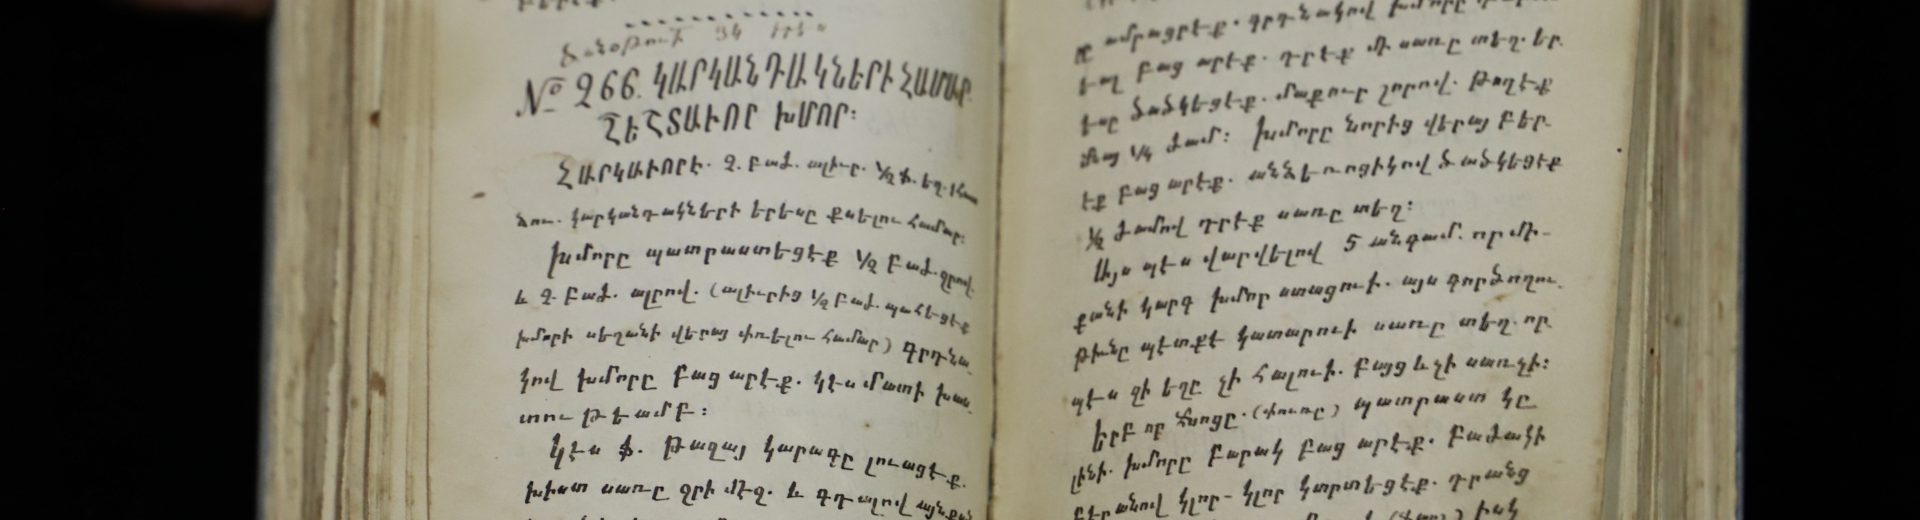 № 266. ԿԱՐԿԱՆԴԱԿՆԵՐԻ ՀԱՄԱՐ
ՇԵՇՏԱՒՈՐ ԽՄՈՐ:
ՀԱՐԿԱՒՈՐԷ. 2. բաժ. ալիւր. ½ ֆ. եղ. 1 հաւ
ձու. կարկանդակների երեսը քսելու համար:
Խմորը պատրաստեցէք ½ բաժ. ջրով.
և 2. բաժ. ալրով. (ալիւրից ½ բաժ. պահեցէք
խմորի սեղանի վերայ փռելու համար) գրդնա
կով խմորը բաց արէք. կէս մատի խաս
տութեամբ:
Կէս ֆ. թազայ կարագը լուացէք.
խիստ սառը ջրի մէջ. և գդալով այնքան
ամրացրէք. գրդնակով խմորը
եաղ բաց արէք. դրէք մի սառը տեղ. եր
եսը ծածկեցէք. մաքուր շորով. թողէք
մնայ ¼ ժամ: խմորը նորից վերայ բեր
էք բաց արէք. անձեռոցիկով ծածկեցէք
½ ժամով դրէք սառը տեղ:
Այս պէս վարվելով 5 անգամ. որ մի-
քանի կարգ խմոր ստացուի. այս գործողու
թիւնը պէտքէ կատարուի սառը տեղ. որ
պէս զի եղը չի հալուի. բայց և չի սառչի:
Երբ որ հնոցը. (փուռը) պատրաստ կը
լինի. խմորը բարակ բաց արէք. բաժակի
բերանով կլոր-կլոր կտրտեցէք. դրանց